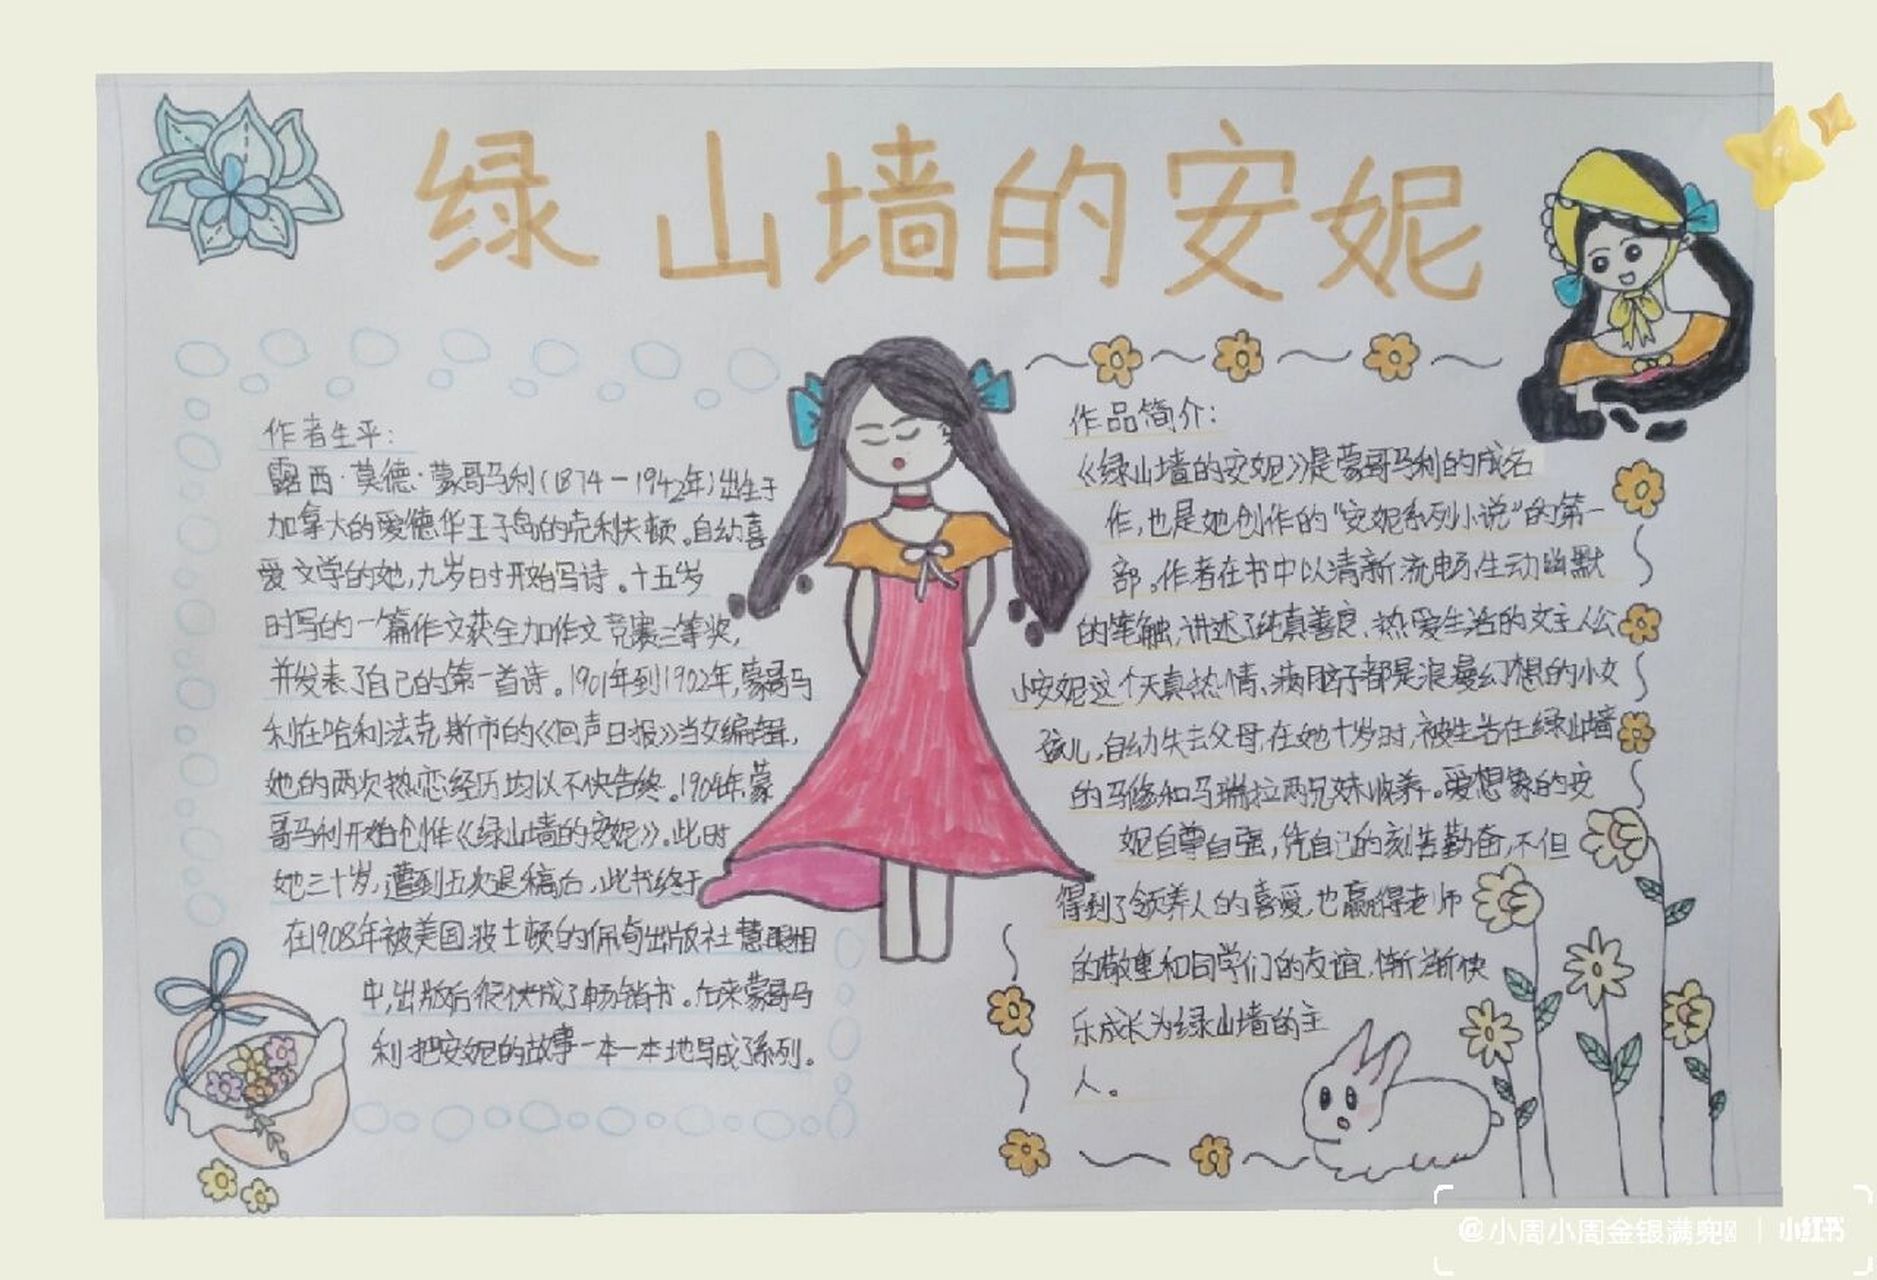 绿山墙的安妮
作者生平：
露西·莫德·蒙哥马利(1874-1942年)出生于
加拿大的爱德华王子岛的克利夫顿。自幼喜
爱文学的她,九岁时开始写诗。十五岁
时写的一篇作文获全加作文竞赛三等奖,
并发表了自己的第一首诗。1901年到1902年,蒙哥马
利在哈利法克斯市的《回声日报》当文编辑,
她的两次热恋经历均以不快告终。1904年,蒙
哥马利开始创作《绿山墙的安妮》。此时
她三十岁,遭到五次退稿后,此书终于
在1908年被美国波士顿的佩奇出版社慧眼相
中,出版后很快成了畅销书。后来蒙哥马
利把安妮的故事一本一本地写成了系列。
作品简介：
《绿山墙的安妮》是蒙哥马利的成名
作,也是她创作的“安妮系列小说”的第一
部。作者在书中以清新流畅、生动幽默
的笔触,讲述了纯真善良、热爱生活的女主人公
小安妮这个天真热情、满脑子都是浪漫幻想的小女
孩儿,自幼失去父母,在她十岁时,被生活在绿山墙
的马修和马瑞拉两兄妹收养。爱想象的安
妮自尊自强,凭自己的刻苦勤奋,不但
得到了领养人的喜爱,也赢得老师
的敬重和同学们的友谊,渐渐快
乐成长为绿山墙的主
人。
@小周小周金银满兜 | 小红书